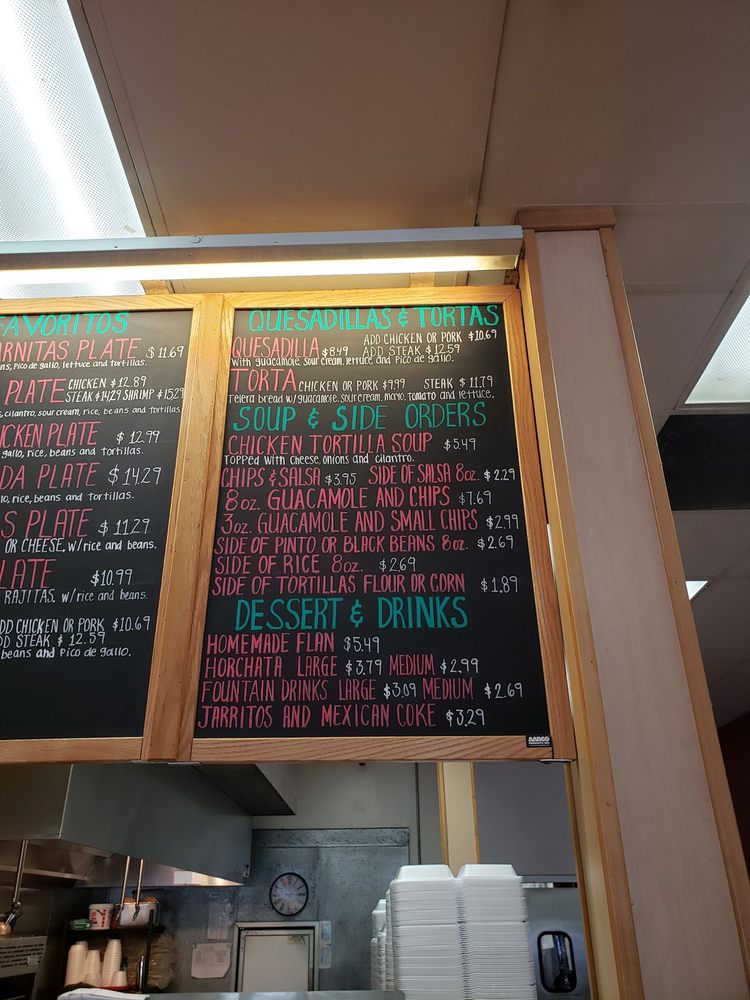 AVORITOS
RNITAS PLATE $11.69
ns, Pico de gallo, lettuce and tortillas.
PLATE CHICKEN $12.89
STEAK $14.29 SHRIMP $15.29
, cilantro, sour cream, rice, beans and tortillas.
ICKEN PLATE $12.99
gallo, rice, beans and tortillas.
DA PLATE $14.29
lo, rice, beans and tortillas.
S PLATE $11.29
OR CHEESE. w/rice and beans.
LATE $10.99
RAJITAS. w/rice and beans.
DD CHICKEN OR PORK $10.69
DD STEAK $12.59
beans and Pico de gallo.
QUESADILLAS & TORTAS
QUESADILLA $8.49 ADD CHICKEN OR PORK $10.69
ADD STEAK $12.59
With guacamole, sour cream, lettuce and Pico de gallo.
TORTA CHICKEN OR PORK $9.99 STEAK $11.79
Telera bread w/guacamole, sour cream, mayo, tomato and lettuce.
SOUP & SIDE ORDERS
CHICKEN TORTILLA SOUP $5.49
Topped with cheese, onions and cilantro.
CHIPS & SALSA $3.95 SIDE OF SALSA 8oz. $2.29
8oz. GUACAMOLE AND CHIPS $7.69
3oz. GUACAMOLE AND SMALL CHIPS $2.99
SIDE OF PINTO OR BLACK BEANS 8oz. $2.69
SIDE OF RICE 8oz. $2.69
SIDE OF TORTILLAS FLOUR OR CORN $1.89
DESSERT & DRINKS
HOMEMADE FLAN $5.49
HORCHATA LARGE $3.79 MEDIUM $2.99
FOUNTAIN DRINKS LARGE $3.09 MEDIUM $2.69
JARRITOS AND MEXICAN COKE $3.29
AARCO